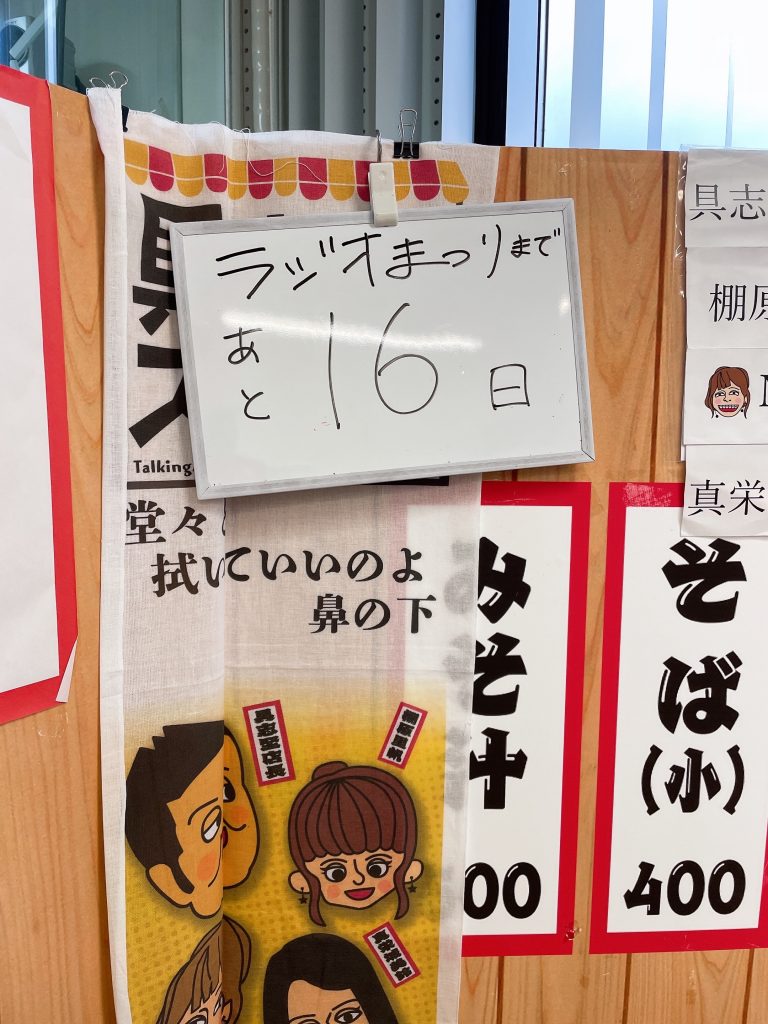 ラジオまつりまで
あと 16 日
Talking
堂々
拭いていいのよ
鼻の下
具志堅店長
棚原里帆
みそ汁
00
そば
(小)
400
具志
棚原
真栄